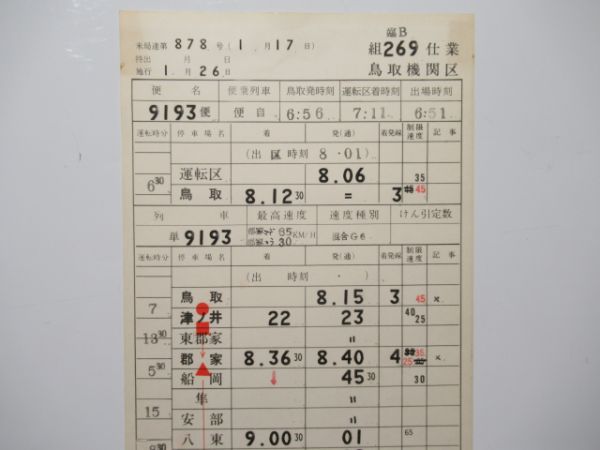 臨B
米局達第 878 号(1月17日)
組269仕業
持出 月 日
施行 1月26日
鳥取機関区
便名 便乗列車 鳥取発時刻 運転区着時刻 出場時刻
9193便 便自 6:56 7:11 6:51
運転時分 停車場名 着 発(通) 着発線 制限速度 記事
(出区時刻 8・01)
運転区 8.06 35
6 30
鳥取 8.12 30 = 3 45
列車 最高速度 速度種別 けん引定数
単9193 85KM/H 30 混合G6
運転時分 停車場名 着 発(通) 着発線 制限速度 記事
(出 時刻 ・ )
鳥取 8.15 3 45 ×
7
津ノ井 22 23 40 25
13 30
東郡家 〃
郡家 8.36 30 8.40 4 35 25 ×
5 30
船岡 ↓ 45 30 30
隼 〃
15
安部 〃
八東 9.00 30 01 65
30